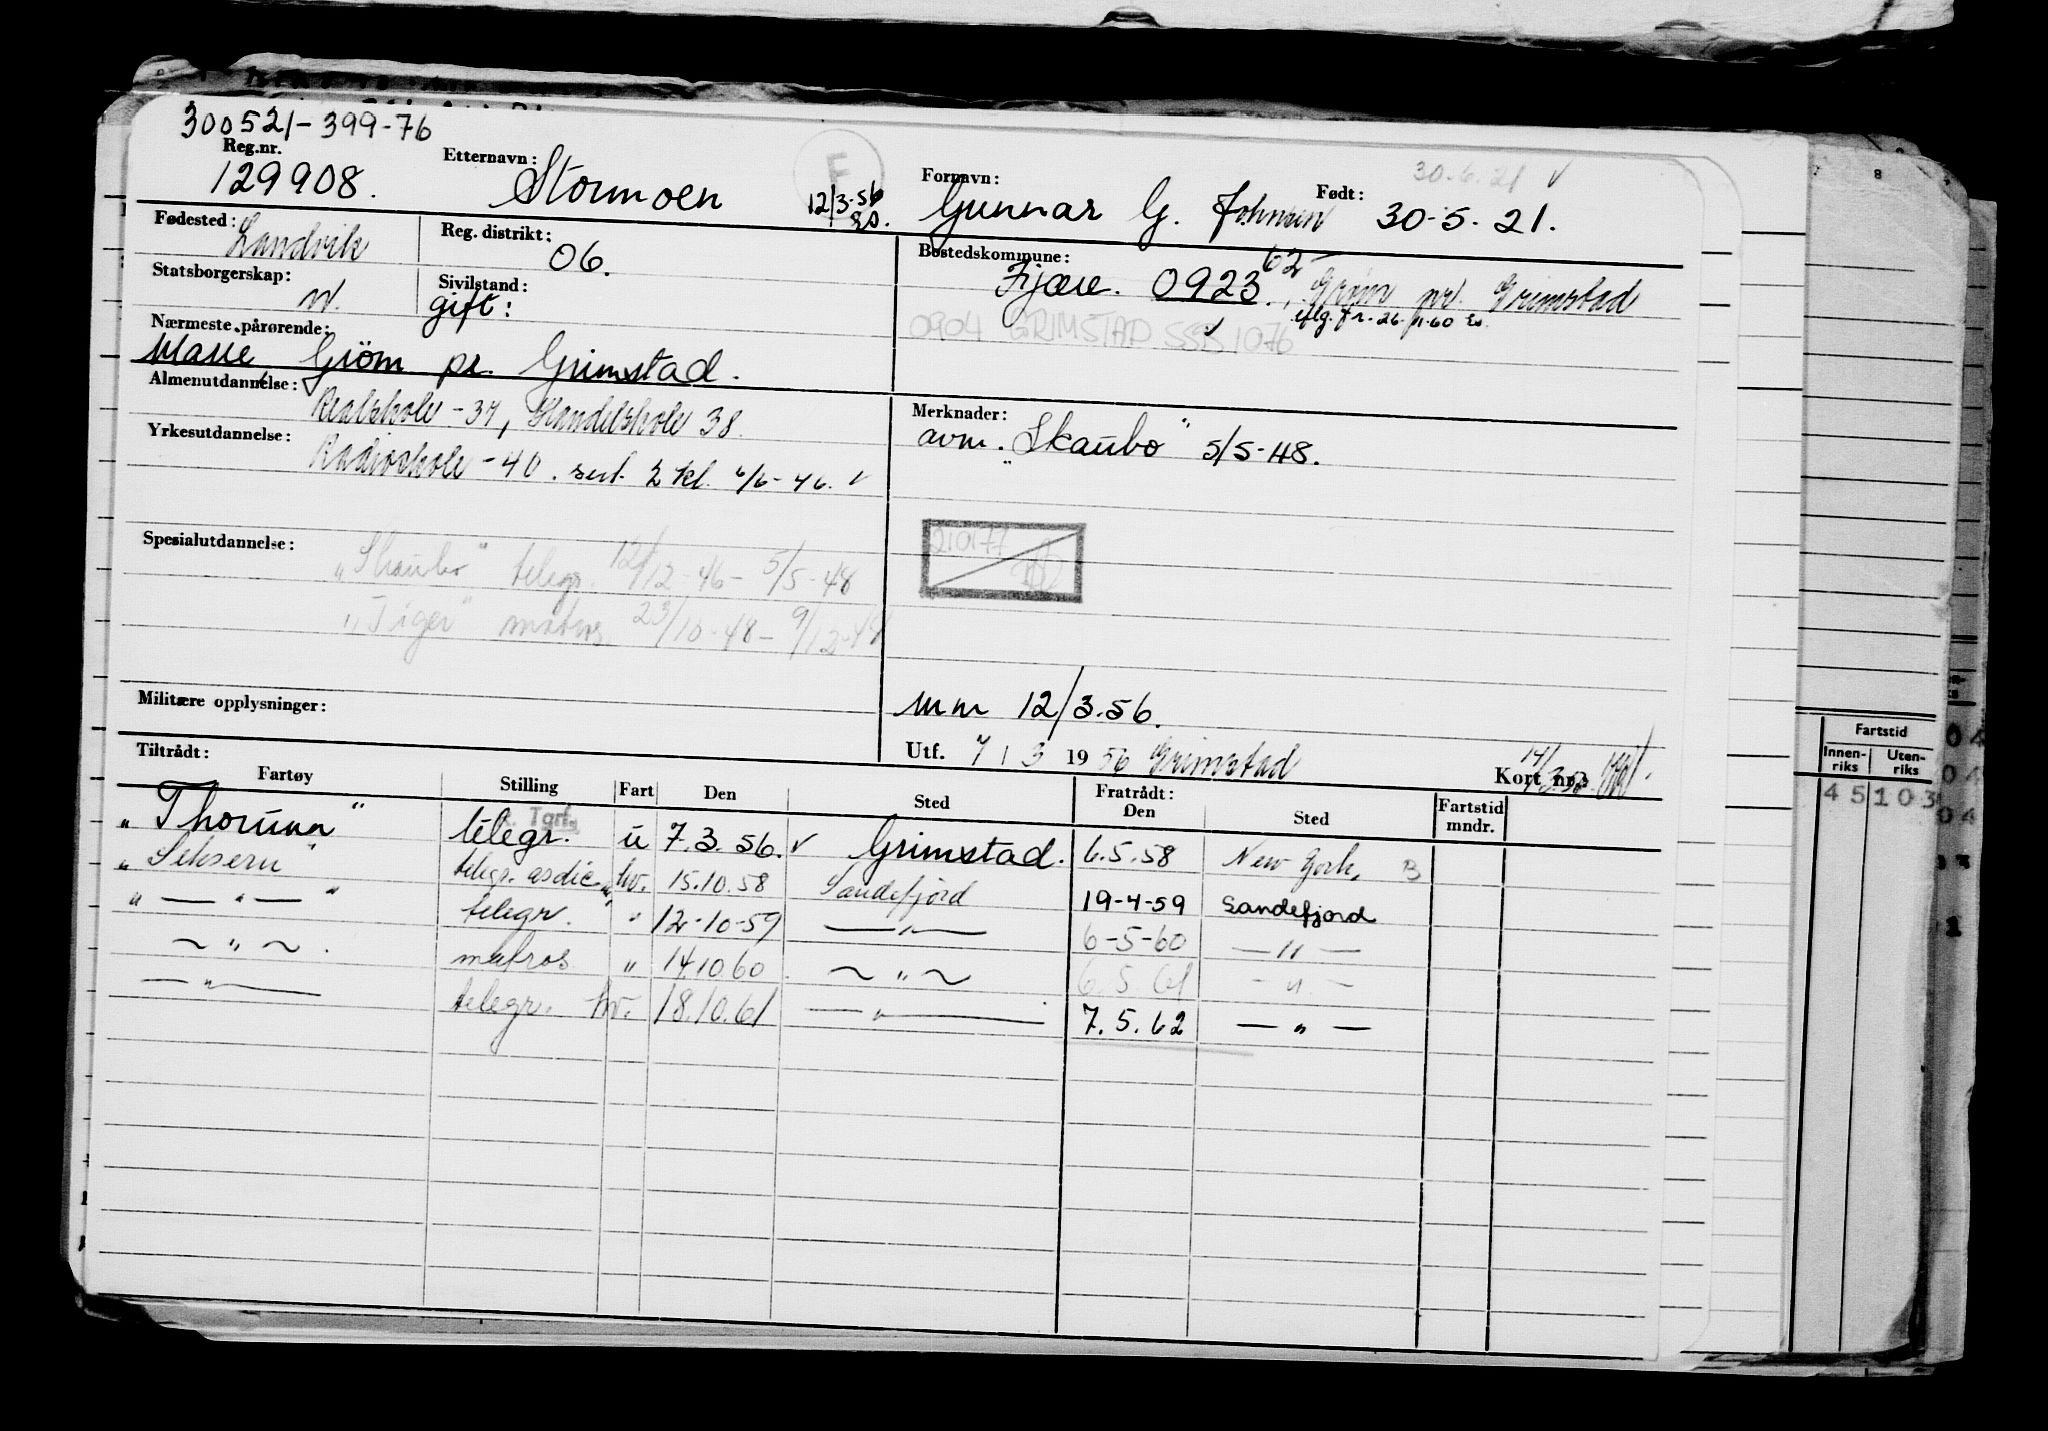 300521-399-76
Reg.nr. 129908. Etternavn: Stormoen 12/3-56 Fornavn: Gunnar G. Johnsen Født: 30-5-21. 30.6.21 ✓
Fødested: Landvik Reg. distrikt: 06. Bostedskommune: Fjære. 0923. 62 pr. Grimstad
Statsborgerskap: N. Sivilstand: gift:
0904 GRIMSTAD SSB 1076
Nærmeste pårørende:
Gröm pr. Grimstad.
Almenutdannelse: Realskole -37, Handelskole 38. Merknader:
avm. "Skaubo" 5/5-48.
Yrkesutdannelse: Radioskole -40. sert. 2 kl. 6/6-46. ✓
210177
Spesialutdannelse: "Skaubo" telegr. 12/12-46- 5/5-48
"Tiger" matros 23/10-48- 9/12-48
Militære opplysninger:
mm 12/3.56.
Tiltrådt: Utf. 7 / 3 1956 Grimstad Kort nr.
Fartøy Stilling Fart Den Sted Fratrådt: Den Sted Fartstid mndr.
telegr. u 7.3.56. ✓ Grimstad. 6.5.58 New York. B
telegr. asdic hv. 15.10.58 Sandefjord 19-4-59 Sandefjord
" — " — " telegr. " 12-10-59 — " — 6-5-60 — " —
~ " ~. matros " 14.10.60. ~ " ~ 6.5.61 - " -
— " — telegr. hv. 18.10.61 — " — 7.5.62 — " —
8
Fartstid
Innen-riks Uten-riks
45 103